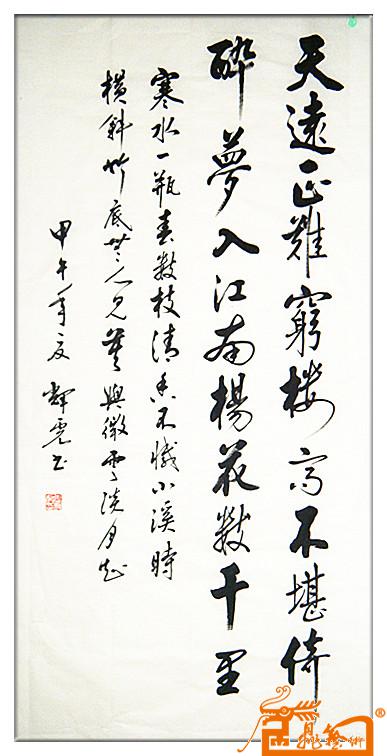 天遠正難窮樓高不堪倚
醉夢入江南楊花數千里
寒水一瓶春數枝清香不減小溪時
橫斜竹底無人見莫與微雲淡月知
甲午年夏 輝书